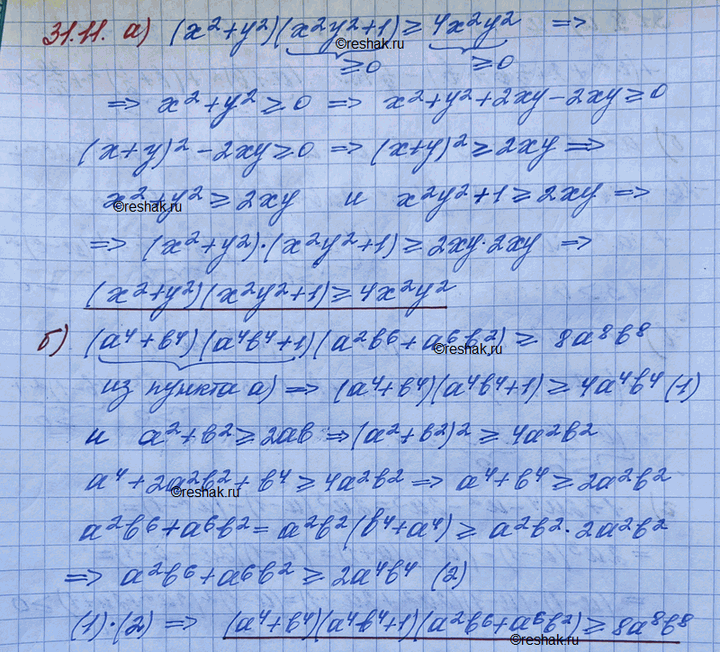 31.11. а) (x²+y²)(x²y²+1) ≥ 4x²y² ⇒
©reshak.ru
≥0 ≥0
⇒ x²+y² ≥ 0 ⇒ x²+y²+2xy−2xy ≥ 0
(x+y)²−2xy ≥ 0 ⇒ (x+y)² ≥ 2xy ⇒
x²+y² ≥ 2xy и x²y²+1 ≥ 2xy ⇒
©reshak.ru
⇒ (x²+y²)·(x²y²+1) ≥ 2xy·2xy ⇒
(x²+y²)(x²y²+1) ≥ 4x²y²
б) (a⁴+b⁴)(a⁴b⁴+1)(a²b⁶+a⁶b²) ≥ 8a⁸b⁸
©reshak.ru
из пункта а) ⇒ (a⁴+b⁴)(a⁴b⁴+1) ≥ 4a⁴b⁴ (1)
и a²+b² ≥ 2ab ⇒ (a²+b²)² ≥ 4a²b²
a⁴+2a²b²+b⁴ ≥ 4a²b² ⇒ a⁴+b⁴ ≥ 2a²b²
©reshak.ru
a²b⁶+a⁶b² = a²b²(b⁴+a⁴) ≥ a²b²·2a²b²
⇒ a²b⁶+a⁶b² ≥ 2a⁴b⁴ (2)
(1)·(2) ⇒ (a⁴+b⁴)(a⁴b⁴+1)(a²b⁶+a⁶b²) ≥ 8a⁸b⁸
©reshak.ru